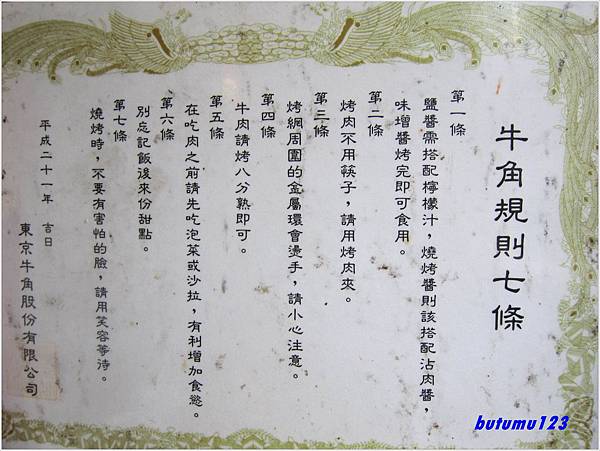 牛角規則七條
第一條
鹽醬需搭配檸檬汁，燒烤醬則該搭配沾肉醬，
味增醬烤完即可食用。
第二條
烤肉不用筷子，請用烤肉夾。
第三條
烤網周圍的金屬環會燙手，請小心注意。
第四條
牛肉請烤八分熟即可。
第五條
在吃肉之前請先吃泡菜或沙拉，有利增加食慾。
第六條
別忘記飯後來份甜點。
第七條
燒烤時，不要有害怕的臉，請用笑容等待。
平成二十一年 吉日
東京牛角股份有限公司
butumu123